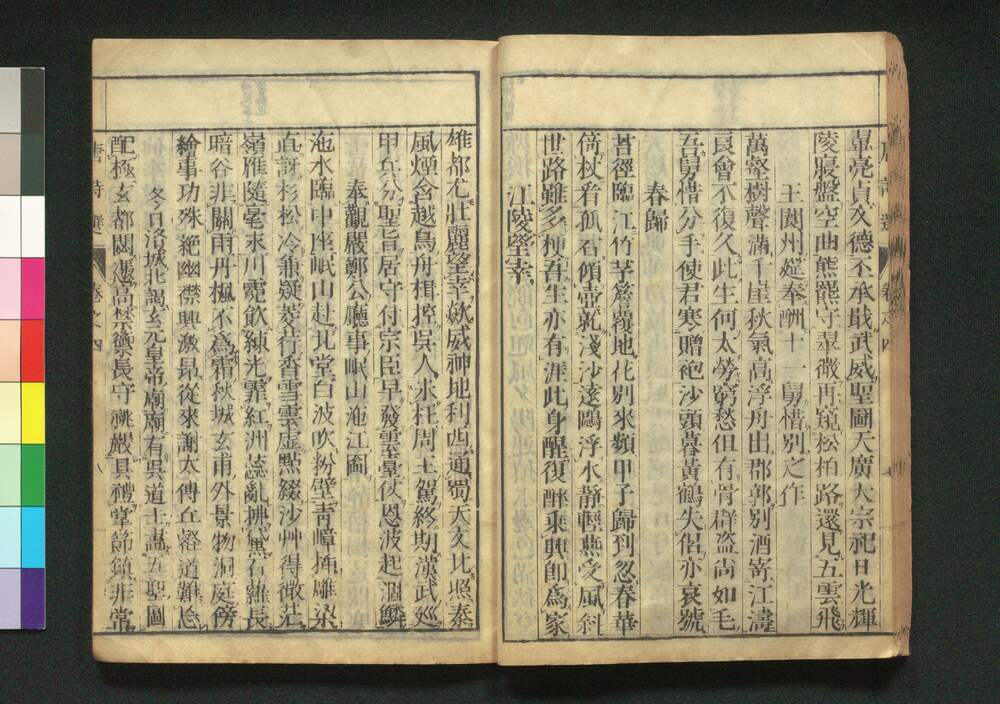 翼亮貞文德丕承戢武威聖圖天廣大宗祀日光輝
陵寢盤空曲熊羆守翠微再窺松柏路還見五雲飛
王閬州筵奉酬十一舅惜別之作
萬壑樹聲滿千崖秋氣高浮舟出郡郭別酒寄江濤
良會不復久此生何太勞窮愁但有骨群盜尚如毛
吾舅惜分手使君寒贈袍沙頭暮黃鶴失侶亦哀號
春歸
苔徑臨江竹茅簷覆地花別來頻甲子歸到忽春華
倚杖看孤石傾壺就淺沙遠鷗浮水靜輕燕受風斜
世路雖多梗吾生亦有涯此身醒復醉乘興即爲家
江陵望幸
雄都元壯麗望幸歘威神地利西通蜀天文北照秦
風煙含越鳥舟楫控吳人未枉周王駕終期漢武巡
甲兵分聖旨居守付宗臣早發雲臺仗恩波起涸鱗
奉觀嚴鄭公廳事岷山沱江圖
沱水臨中座岷山赴北堂白波吹粉壁青嶂插雕梁
直訝杉松冷兼疑菱荇香雪雲虛點綴沙艸得微茫
嶺雁隨毫末川霓飲練光霏紅洲蕊亂拂黛石蘿長
暗谷非關雨丹楓不爲霜秋城玄甫外景物洞庭傍
繪事功殊絕幽襟興激昂從來謝太傅丘壑道難忘
冬日洛城北謁玄元皇帝廟廟有吳道士畫五聖圖
配極玄都閟憑高禁籞長守祧嚴具禮掌節鎮非常
唐詩選 卷之四 八